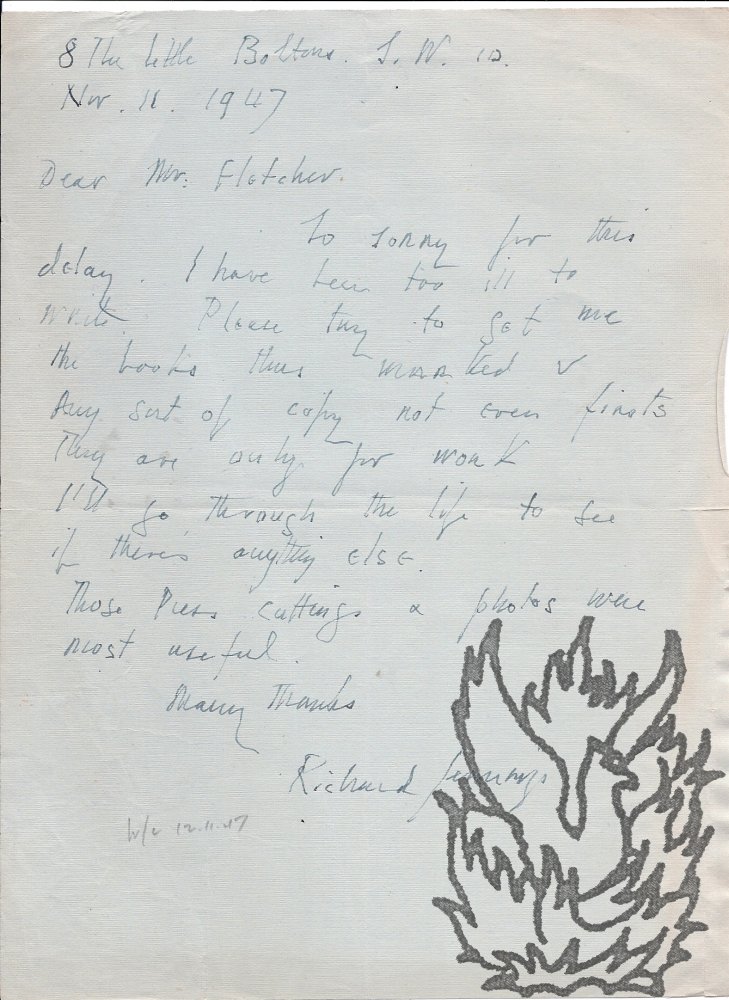 8 The Little Boltons. S. W. 10.
Nov. 11. 1947
Dear Mr. Fletcher.
So sorry for this
delay. I have been too ill to
write. Please try to get me
the books thus marked v
Any sort of copy not even firsts
They are only for work
I'll go through the life to see
if there's anything else.
Those Press cuttings & photos were
most useful.
Many Thanks
Richard Jennings
12.11.47